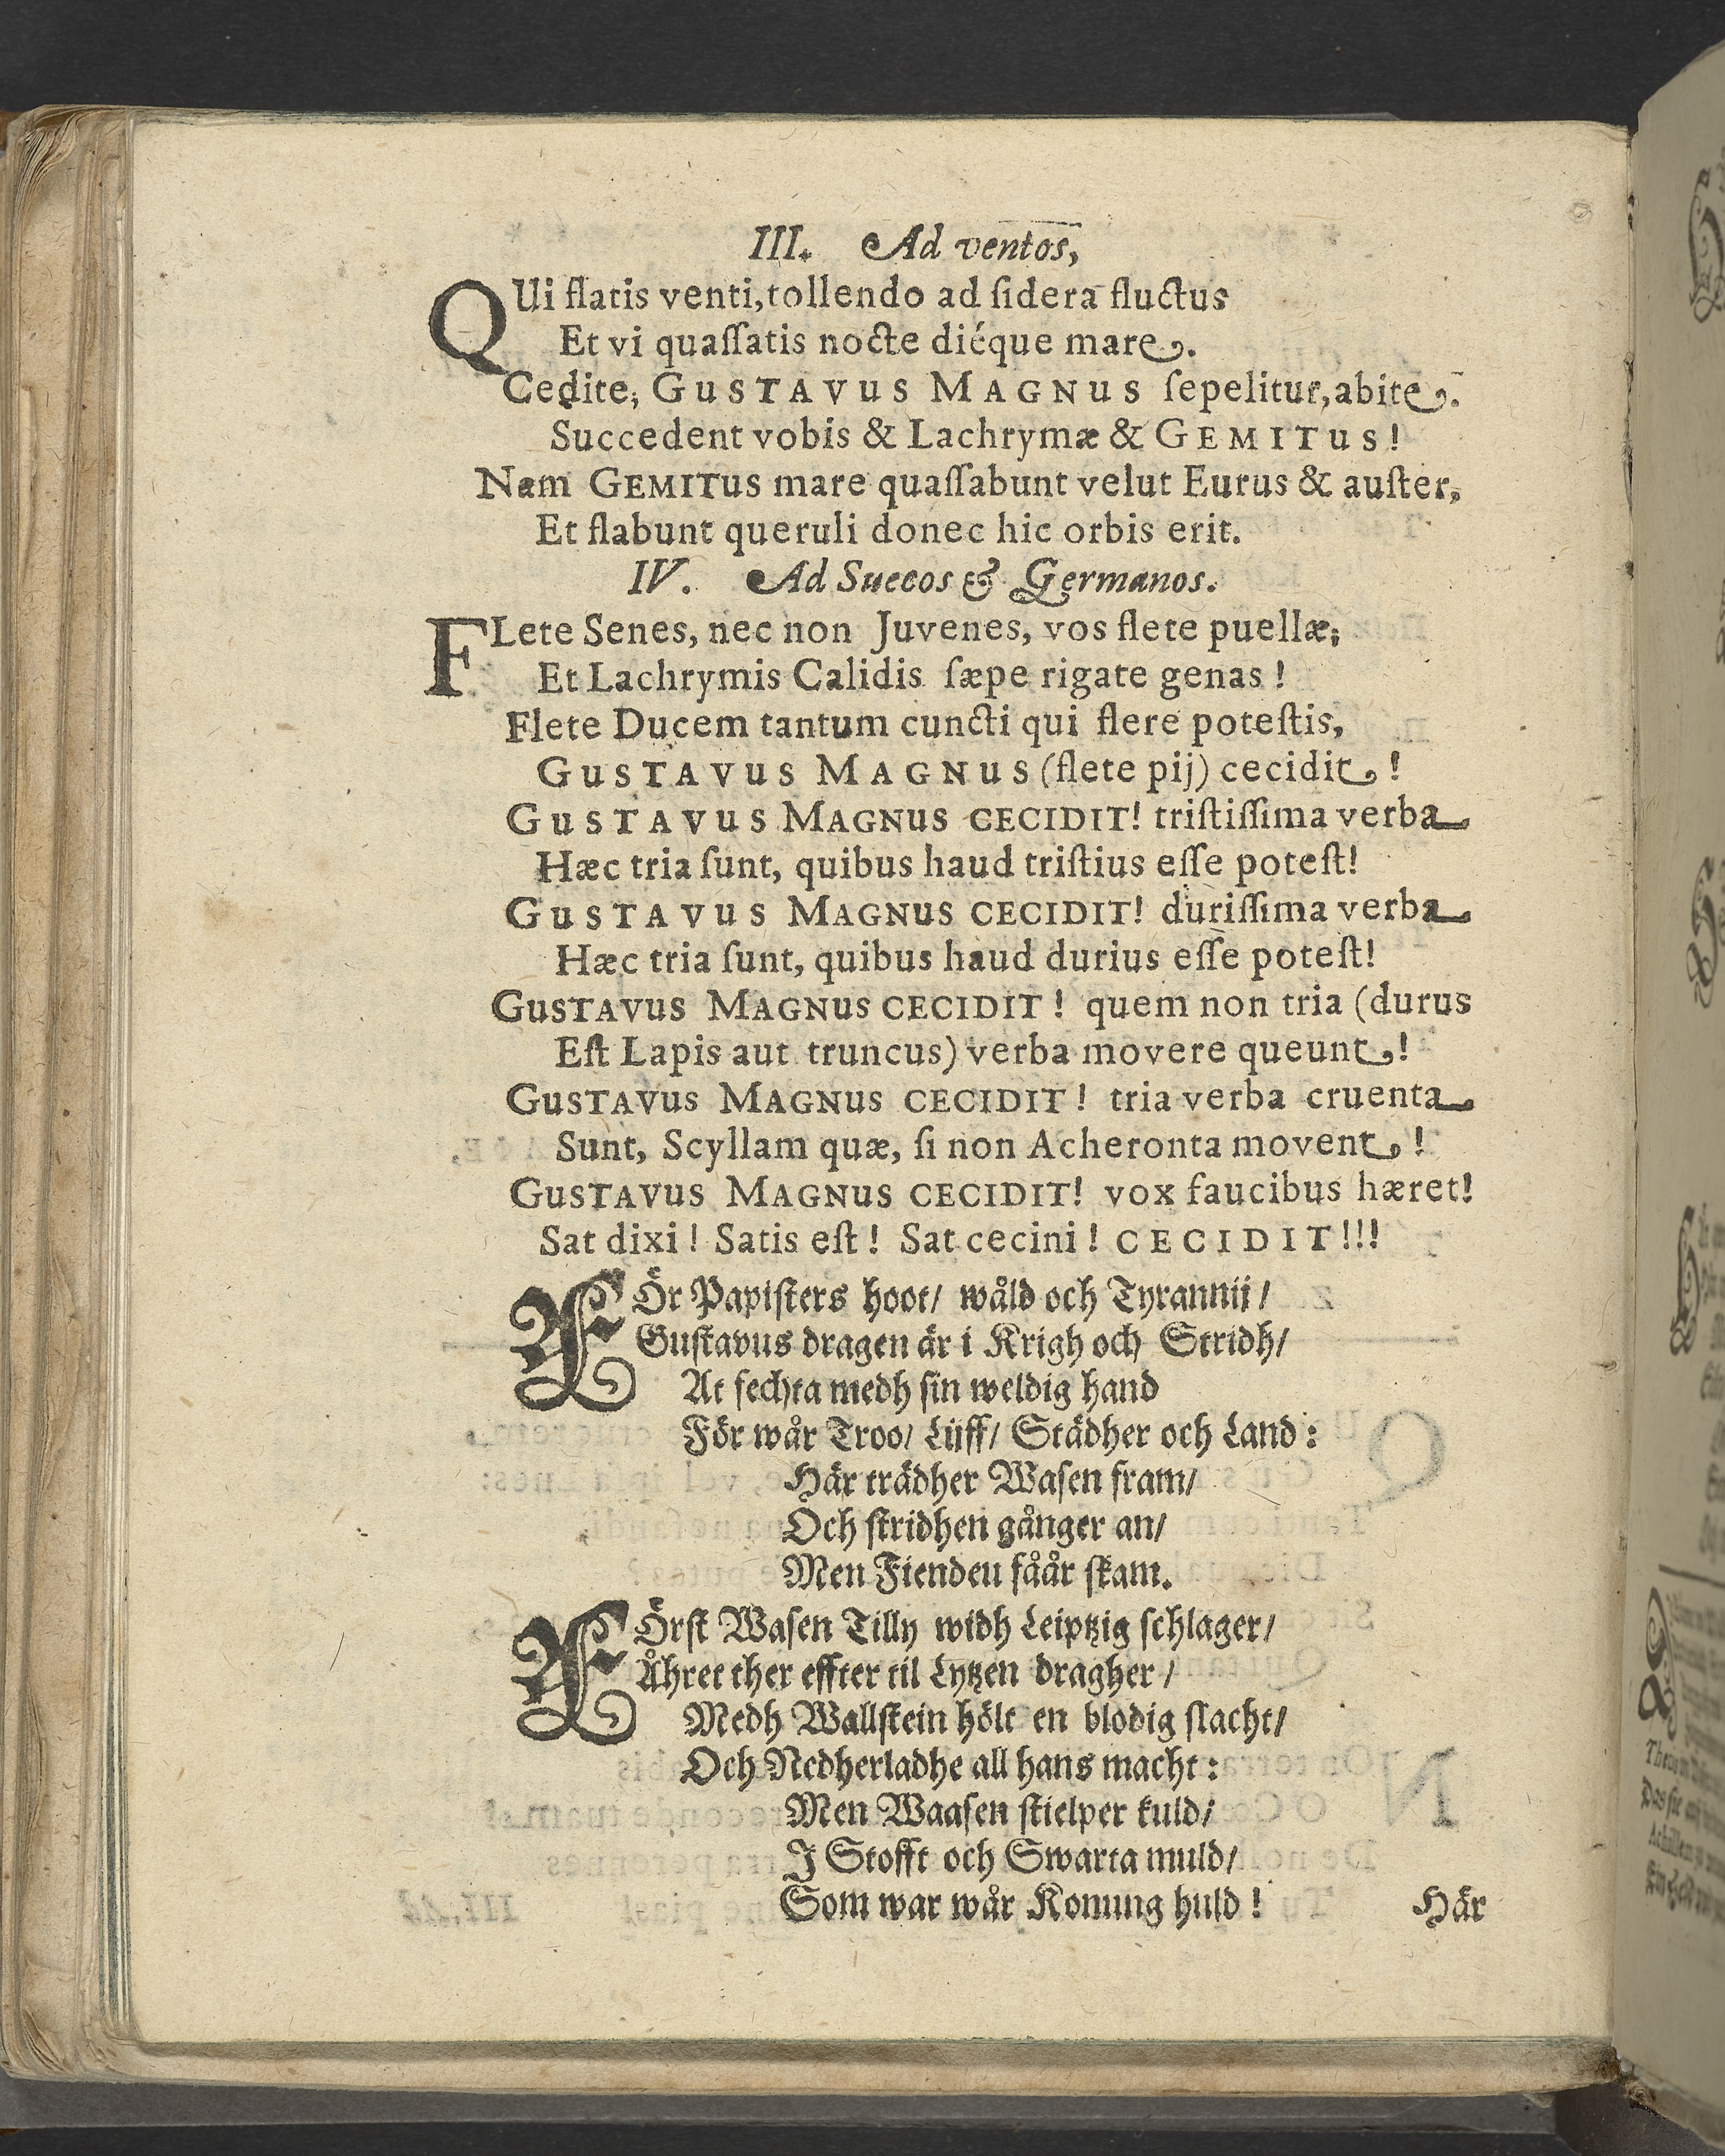 III. Ad ventos,
QUi flatis venti, tollendo ad ſidera fluctus
Et vi quaſſatis nocte diéque mare.
Cedite, GUSTAVUS MAGNUS ſepelitur, abite.
Succedent vobis & Lachrymæ & GEMITUS!
Nam GEMITUS mare quaſſabunt velut Eurus & auſter,
Et flabunt queruli donec hic orbis erit.
IV. Ad Suecos & Germanos.
FLete Senes, nec non Juvenes, vos flete puellæ,
Et Lachrymis Calidis ſæpe rigate genas!
Flete Ducem tantum cuncti qui flere poteſtis,
GUSTAVUS MAGNUS (flete pij) cecidit!
GUSTAVUS MAGNUS CECIDIT! triſtiſſima verba
Hæc tria ſunt, quibus haud triſtius eſſe poteſt!
GUSTAVUS MAGNUS CECIDIT! duriſſima verba
Hæc tria ſunt, quibus haud durius eſſe poteſt!
GUSTAVUS MAGNUS CECIDIT! quem non tria (durus
Eſt Lapis aut truncus) verba movere queunt!
GUSTAVUS MAGNUS CECIDIT! tria verba cruenta
Sunt, Scyllam quæ, ſi non Acheronta movent!
GUSTAVUS MAGNUS CECIDIT! vox faucibus hæret!
Sat dixi! Satis eſt! Sat cecini! CECIDIT!!!
FÖr Papiſters hoot/ wåld och Tyrannij/
Guſtavus dragen är i Krigh och Stridh/
At fechta medh ſin weldig hand
För wår Troo/ Lijff/ Städher och Land:
Här trädher Waſen fram/
Och ſtridhen gånger an/
Men Fienden fåår ſkam.
FÖrſt Waſen Tilly widh Leiptzig ſchlager/
Åhret ther effter til Lytzen dragher/
Medh Wallſtein hölt en blodig ſlacht/
Och Nedherladhe all hans macht:
Men Waaſen ſtielper kuld/
I Stofft och Swarta muld/
Som war wår Konung huld!
Här